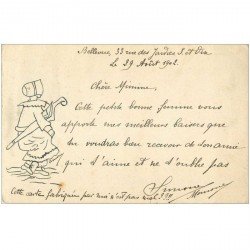 Bellevue, 33 rue des Jardies S. et Oise
Le 29 Août 1902.
Chère Mimine,
Cette petite bonne femme vous
apporte mes meilleurs baisers que
tu voudras bien recevoir de ton amie
qui t'aime et ne t'oublie pas
Simone
Cette carte fabriquée par moi n'est pas